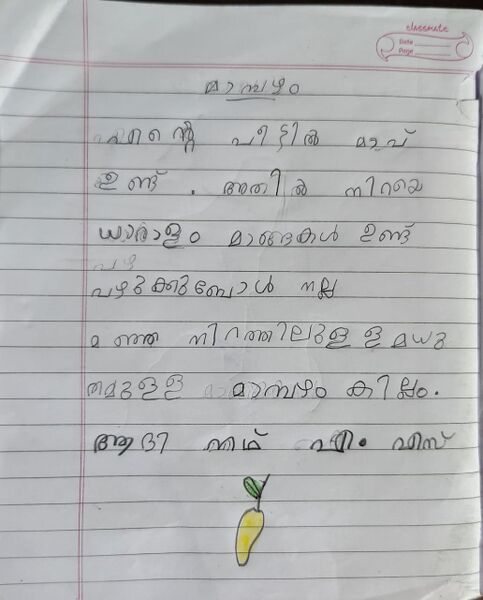 classmate
Date
Page
മാമ്പഴം
എന്റെ വീട്ടിൽ മാവ്
ഉണ്ട് . അതിൽ നിറയെ
ധാരാളം മാങ്ങകൾ ഉണ്ട്
പഴ
പഴുക്കുബോൾ നല്ല
മഞ്ഞ നിറത്തിലുള്ള മധു
രമുള്ള മാമ്പഴം കിട്ടും.
ആദി എം എസ്